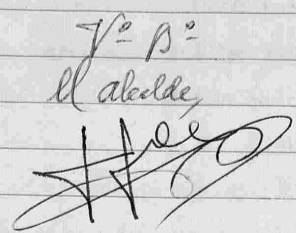 Vº Bº
El alcalde,